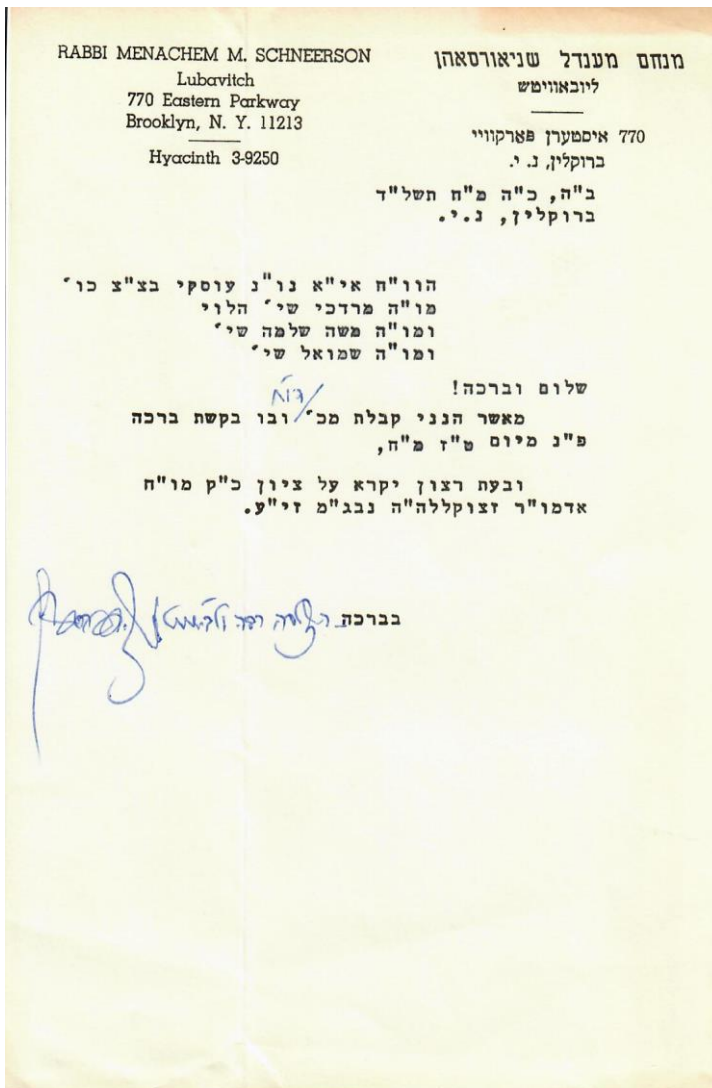 RABBI MENACHEM M. SCHNEERSON
Lubavitch
770 Eastern Parkway
Brooklyn, N. Y. 11213
Hyacinth 3-9250
מנחם מענדל שניאורסאהן
ליובאוויטש
770 איסטערן פארקוויי
ברוקלין, נ. י.
ב"ה, כ"ה מ"ח תשל"ד
ברוקלין, נ.י.
הוו"ח אי"א נו"נ עוסקי בצ"צ כו'
מו"ה מרדכי שי' הלוי
ומו"ה משה שלמה שי'
ומו"ה שמואל שי'
שלום וברכה!
מאשר הנני קבלת מכ' ובו בקשת ברכה
פ"נ מיום ט"ז מ"ח,
ובעת רצון יקרא על ציון כ"ק מו"ח
אדמו"ר זצוקללה"ה נבג"מ זי"ע.
בברכה